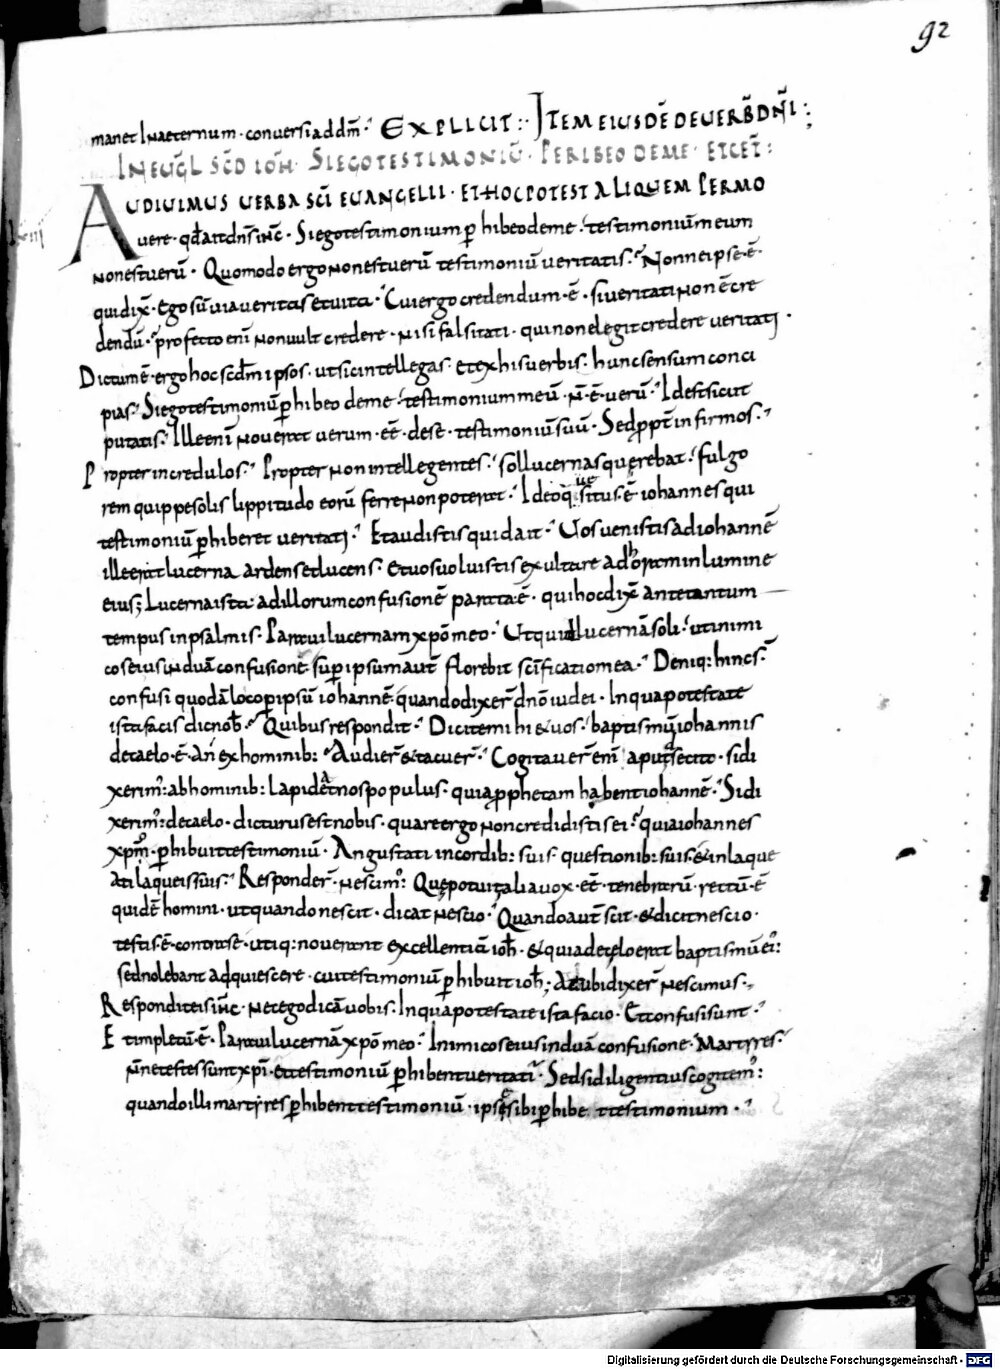 92
manet Inaeternum · conversiaddm̄ · EXPLICIT : · ITEM EIUSDĒ DE UERB̄ DN̄I :
IN EUGL̄ SCD̄ IOH̄ · SI EGO TESTIMONIŪ · PERIBEO DE ME · ET CET̄ :
AUDIUIMUS UERBA SCĪ EUANGELII · ET HOC POTEST ALIQUEM PERMO
uere · qd̄ ait dn̄s ihc̄ · Si ego testimonium ꝑhibeo de me · testimoniū meum
non est uerū · Quomodo ergo non est uerū testimoniū ueritatis · Nonne ipse ē ·
qui dix̄ · Ego sū uia ueritas et uita · Cui ergo credendum · ē · si ueritati non ē cre
dendū · profecto enī non uult credere · nisi falsitati · qui non elegit credere ueritati ·
Dictum ē · ergo hoc scdm̄ ipsos · ut sic intellegas · et ex his uerbis · hunc sensum conci
pias · Si ego testimoniū ꝑhibeo de me · testimonium meū · n̄ · ē · uerū · Id est sicut
putatis · Ille enī nouerat uerum · eē · de se · testimoniū suū · Sed ꝓpt̄ infirmos ·
Propter incredulos · Propter non intellegentes · sol lucernas quęrebat · fulgo
rem quippe solis lippitudo eorū ferre non poterat · Ideoq; quesitus · ē iohannes qui
testimoniū ꝑhiberet ueritati · Et audistis quid ait · Uos uenistis ad iohannē
ille erat lucerna ardens et lucens · et uos uoluistis exultare ad horam in lumine
eius ; Lucerna ista · ad illorum confusionē parata · ē · qui hoc dix̄ ante tantum
tempus in psalmis · Paraui lucernam xp̄o meo · Ut quid lucernā soli · ut inimi
cos eius induā confusione · suꝑ ipsum aut̄ florebit scīficatio mea · Deniq : hinc s̄
confusi quodā loco ꝑ ipsū iohannē · quando dixer̄ dn̄o iudei · In qua potestate
ista facis dic nob̄ · Quibus respondit · Dicite mihi & uos · baptismū iohannis
de caelo · ē · an̄ ex hominib: · Audier̄ & tacuer̄ · Cogitauer̄ enī aput se cito · si di
xerim̄ : ab hominib: lapidat nos populus · quia ꝓphetam habent iohannē · Si di
xerim̄ : de caelo · dicturus est nobis · quare ergo non credidistis ei · quia iohannes
xpm̄ · ꝑhibuit testimoniū · Angustati in cordib: suis · questionib: suis · & inlaque
ati laqueis suis · Responder̄ · nescim̄ : Quę potuit alia uox · eē · tenebrarū · rectū · ē
quidē homini · ut quando nescit · dicat nescio · Quando aut̄ scit · & dicit nescio ·
testis · ē · contra se · utiq : nouerant excellentiā ioh̄ · & quia de cęlo erat baptismū ei :
sed nolebant adquiescere · cui testimoniū ꝑhibuit ioh̄ ; At ubi dixer̄ nescimus ·
Respondit eis ihc̄ · nec ego dicā uobis · In qua potestate ista facio · Et confusi sunt ·
Et impletū · ē · Paraui lucernā xp̄o meo · Inimicos eius induā confusione · Martyres ·
n̄ne testes sunt xp̄i · et testimoniū ꝑhibent ueritati · Sed si diligentius cogitem̄ :
quando illi martyres ꝑhibent testimoniū · ipse sibi ꝑhibet testimonium ·
Digitalisierung gefördert durch die Deutsche Forschungsgemeinschaft - DFG